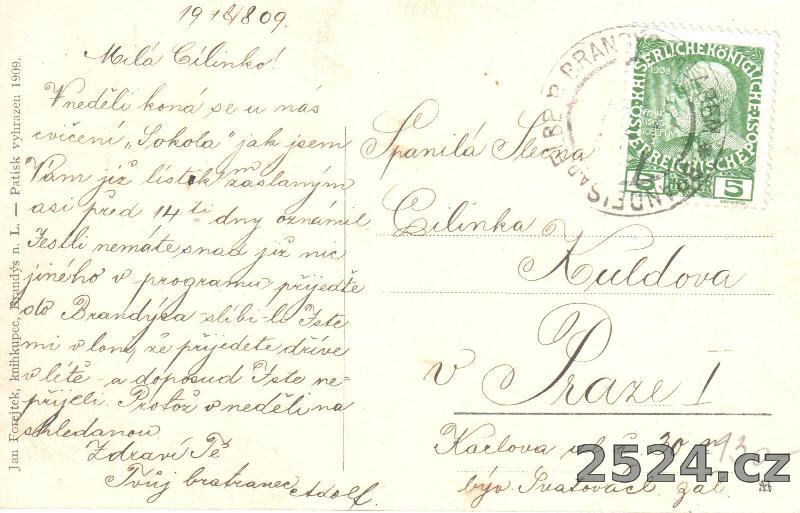 19 18/8 09.
Milá Cílinko!
V neděli koná se u nás
cvičení „Sokola" jak jsem
Vám již lístkem zaslaným
asi před 14ti dny oznámil
Jestli nemáte snad již nic
jiného v programu přijeďte
do Brandýsa slíbi-li Jste
mi v loni, že přijedete dříve
v létě a doposud Jste ne-
přijeli. Protož v neděli na
shledanou
Zdraví Tě
Tvůj bratranec Adolf.
Spanilá Slečna
Cilinka
Kuldova
v Praze I
Karlova ul. č. 30 n
býv. zál
Jan Forejtek, knihkupec, Brandýs n. L. — Patisk vyhrazen 1909.
KAISERLICHE KÖNIGLICHE
OESTERREICHISCHE POST
1908
5 5
2524.cz